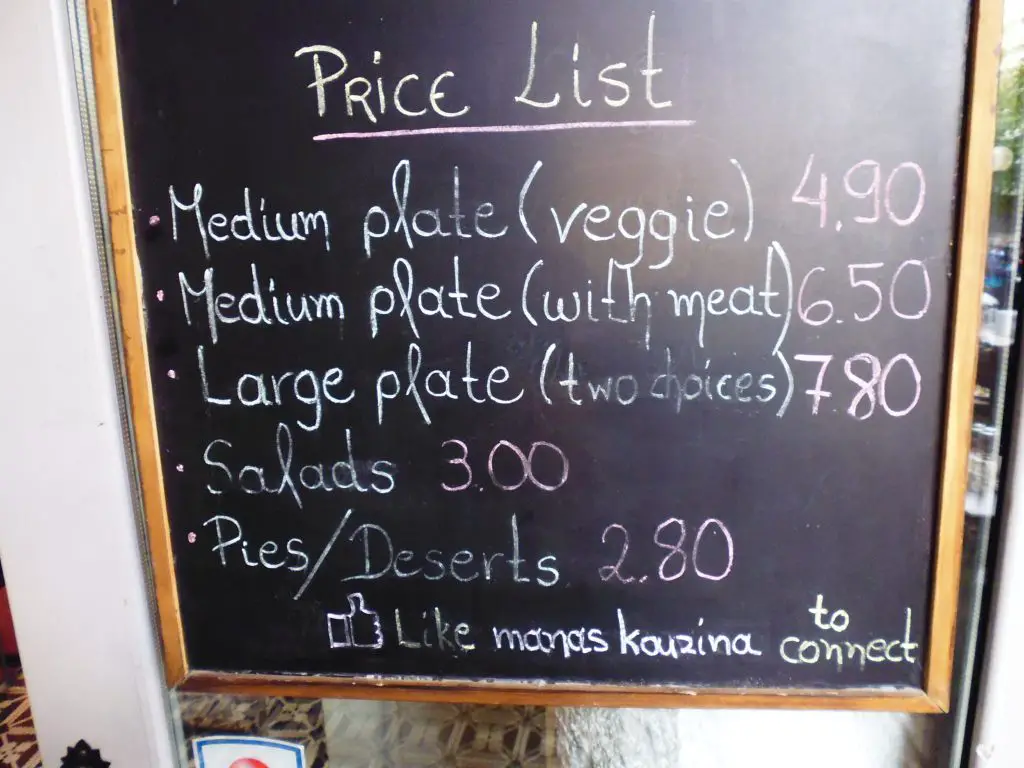 Price List
• Medium plate (veggie) 4.90
• Medium plate (with meat) 6.50
• Large plate (two choices) 7.80
• Salads 3.00
• Pies/Deserts 2.80
Like manas kouzina to connect